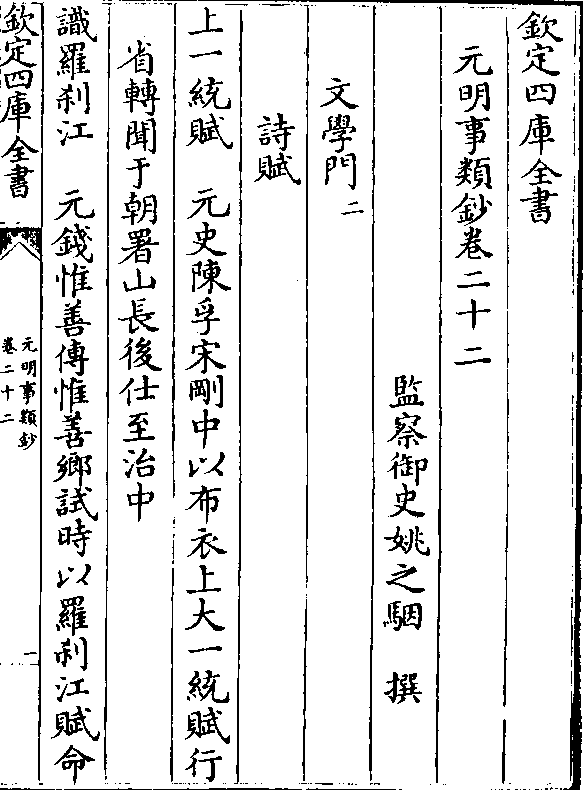 欽定四庫全書
元明事類鈔卷二十二
監察御史姚之駰 撰
文學門二
詩賦
上一統賦 元史陳孚宋剛中以布衣上大一統賦行
省轉聞于朝署山長後仕至治中
識羅刹江 元錢惟善傳惟善鄉試時以羅刹江賦命
欽定四庫全書
元明事類鈔
卷二十二
一